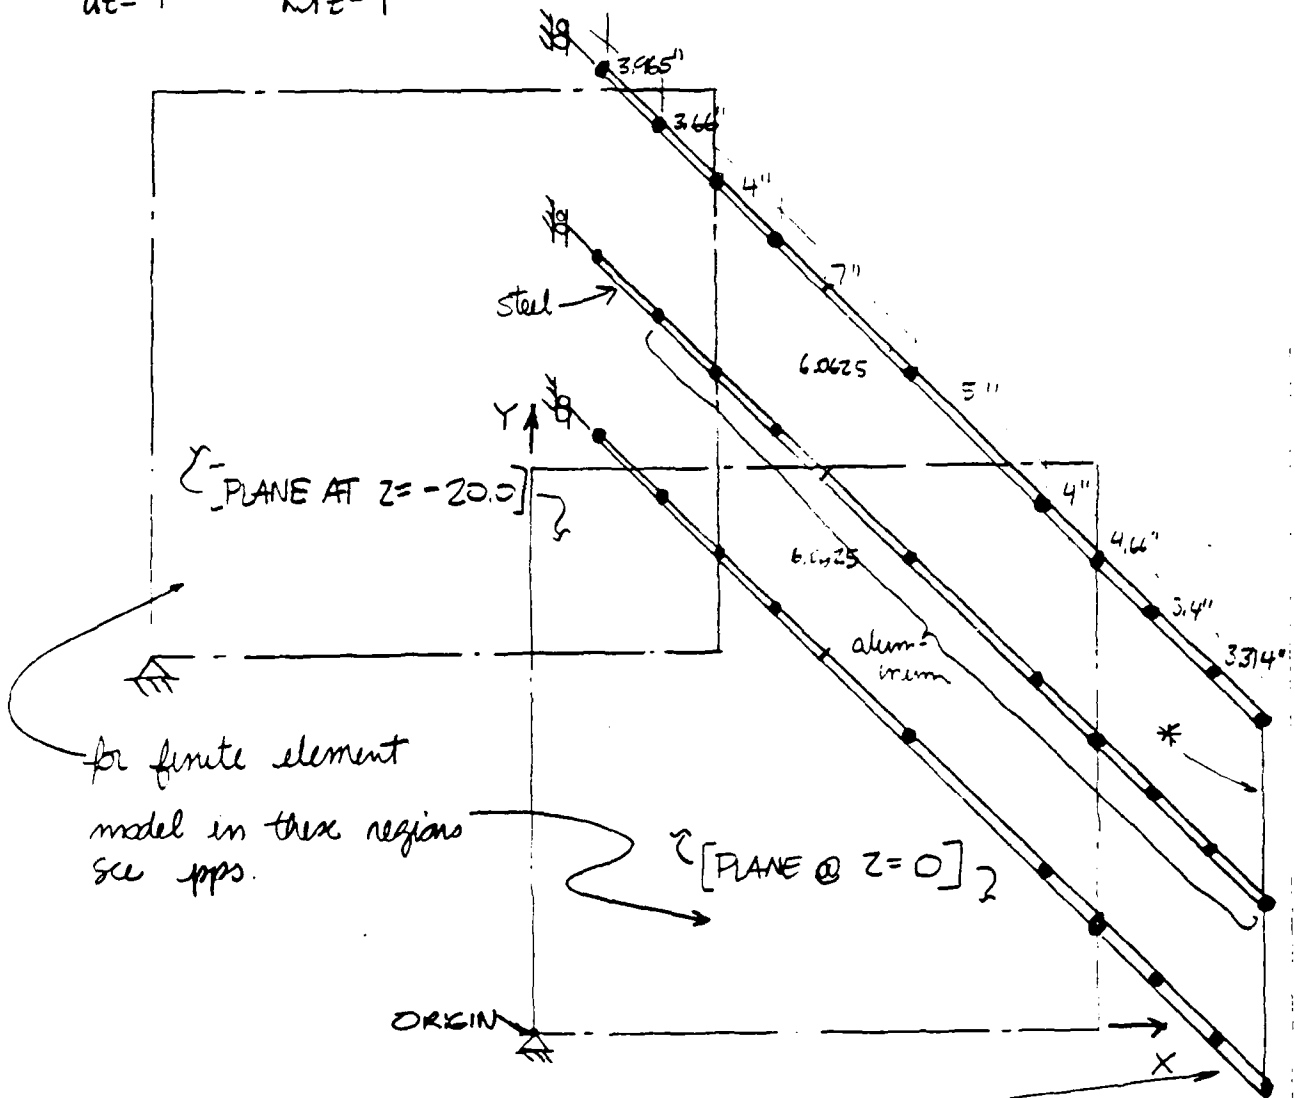 3.965"
3.66"
4"
7"
steel
6.0625
5"
Y
[PLANE AT Z = -20.0]
4"
4.66"
3.4"
3.314"
alum-
inum
*
for finite element
model in these regions
see pps.
[PLANE @ Z = 0]
ORIGIN
X